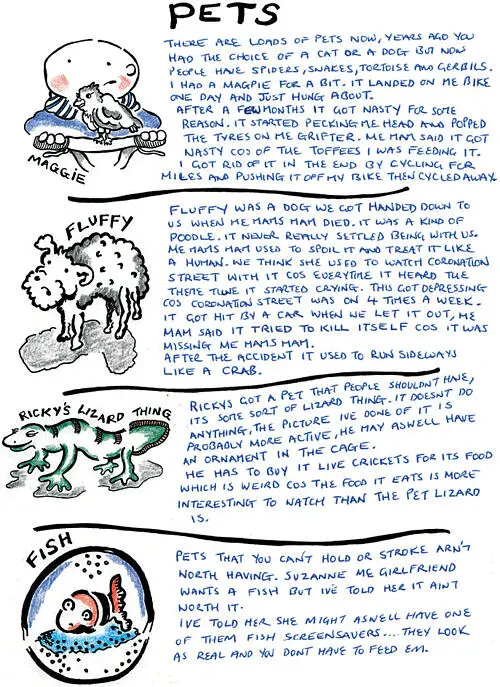 PETS
THERE ARE LOADS OF PETS NOW, YEARS AGO YOU
HAD THE CHOICE OF A CAT OR A DOG BUT NOW
PEOPLE HAVE SPIDERS, SNAKES, TORTOISE AND GERBILS.
I HAD A MAGPIE FOR A BIT. IT LANDED ON ME BIKE
ONE DAY AND JUST HUNG ABOUT.
AFTER A FEW MONTHS IT GOT NASTY FOR SOME
REASON. IT STARTED PECKING ME HEAD AND POPPED
THE TYRES ON ME GRIFTER. ME MAM SAID IT GOT
NASTY COS OF THE TOFFEES I WAS FEEDING IT.
I GOT RID OF IT IN THE END BY CYCLING FOR
MILES AND PUSHING IT OFF MY BIKE THEN CYCLED AWAY.
MAGGIE
FLUFFY
FLUFFY WAS A DOG WE GOT HANDED DOWN TO
US WHEN ME MAMS MAM DIED. IT WAS A KIND OF
POODLE. IT NEVER REALLY SETTLED BEING WITH US.
ME MAMS MAM USED TO SPOIL IT AND TREAT IT LIKE
A HUMAN. WE THINK SHE USED TO WATCH CORONATION
STREET WITH IT COS EVERYTIME IT HEARD THE
THEME TUNE IT STARTED CRYING. THIS GOT DEPRESSING
COS CORONATION STREET WAS ON 4 TIMES A WEEK.
IT GOT HIT BY A CAR WHEN WE LET IT OUT, ME
MAM SAID IT TRIED TO KILL ITSELF COS IT WAS
MISSING ME MAMS MAM.
AFTER THE ACCIDENT IT USED TO RUN SIDEWAYS
LIKE A CRAB.
RICKY'S LIZARD THING
RICKYS GOT A PET THAT PEOPLE SHOULDNT HAVE,
ITS SOME SORT OF LIZARD THING. IT DOESNT DO
ANYTHING. THE PICTURE IVE DONE OF IT IS
PROBABLY MORE ACTIVE, HE MAY ASWELL HAVE
AN ORNAMENT IN THE CAGE.
HE HAS TO BUY IT LIVE CRICKETS FOR ITS FOOD
WHICH IS WEIRD COS THE FOOD IT EATS IS MORE
INTERESTING TO WATCH THAN THE PET LIZARD
IS.
FISH
PETS THAT YOU CAN'T HOLD OR STROKE ARN'T
WORTH HAVING. SUZANNE ME GIRLFRIEND
WANTS A FISH BUT IVE TOLD HER IT AINT
WORTH IT.
IVE TOLD HER SHE MIGHT ASWELL HAVE ONE
OF THEM FISH SCREENSAVERS.... THEY LOOK
AS REAL AND YOU DONT HAVE TO FEED EM.